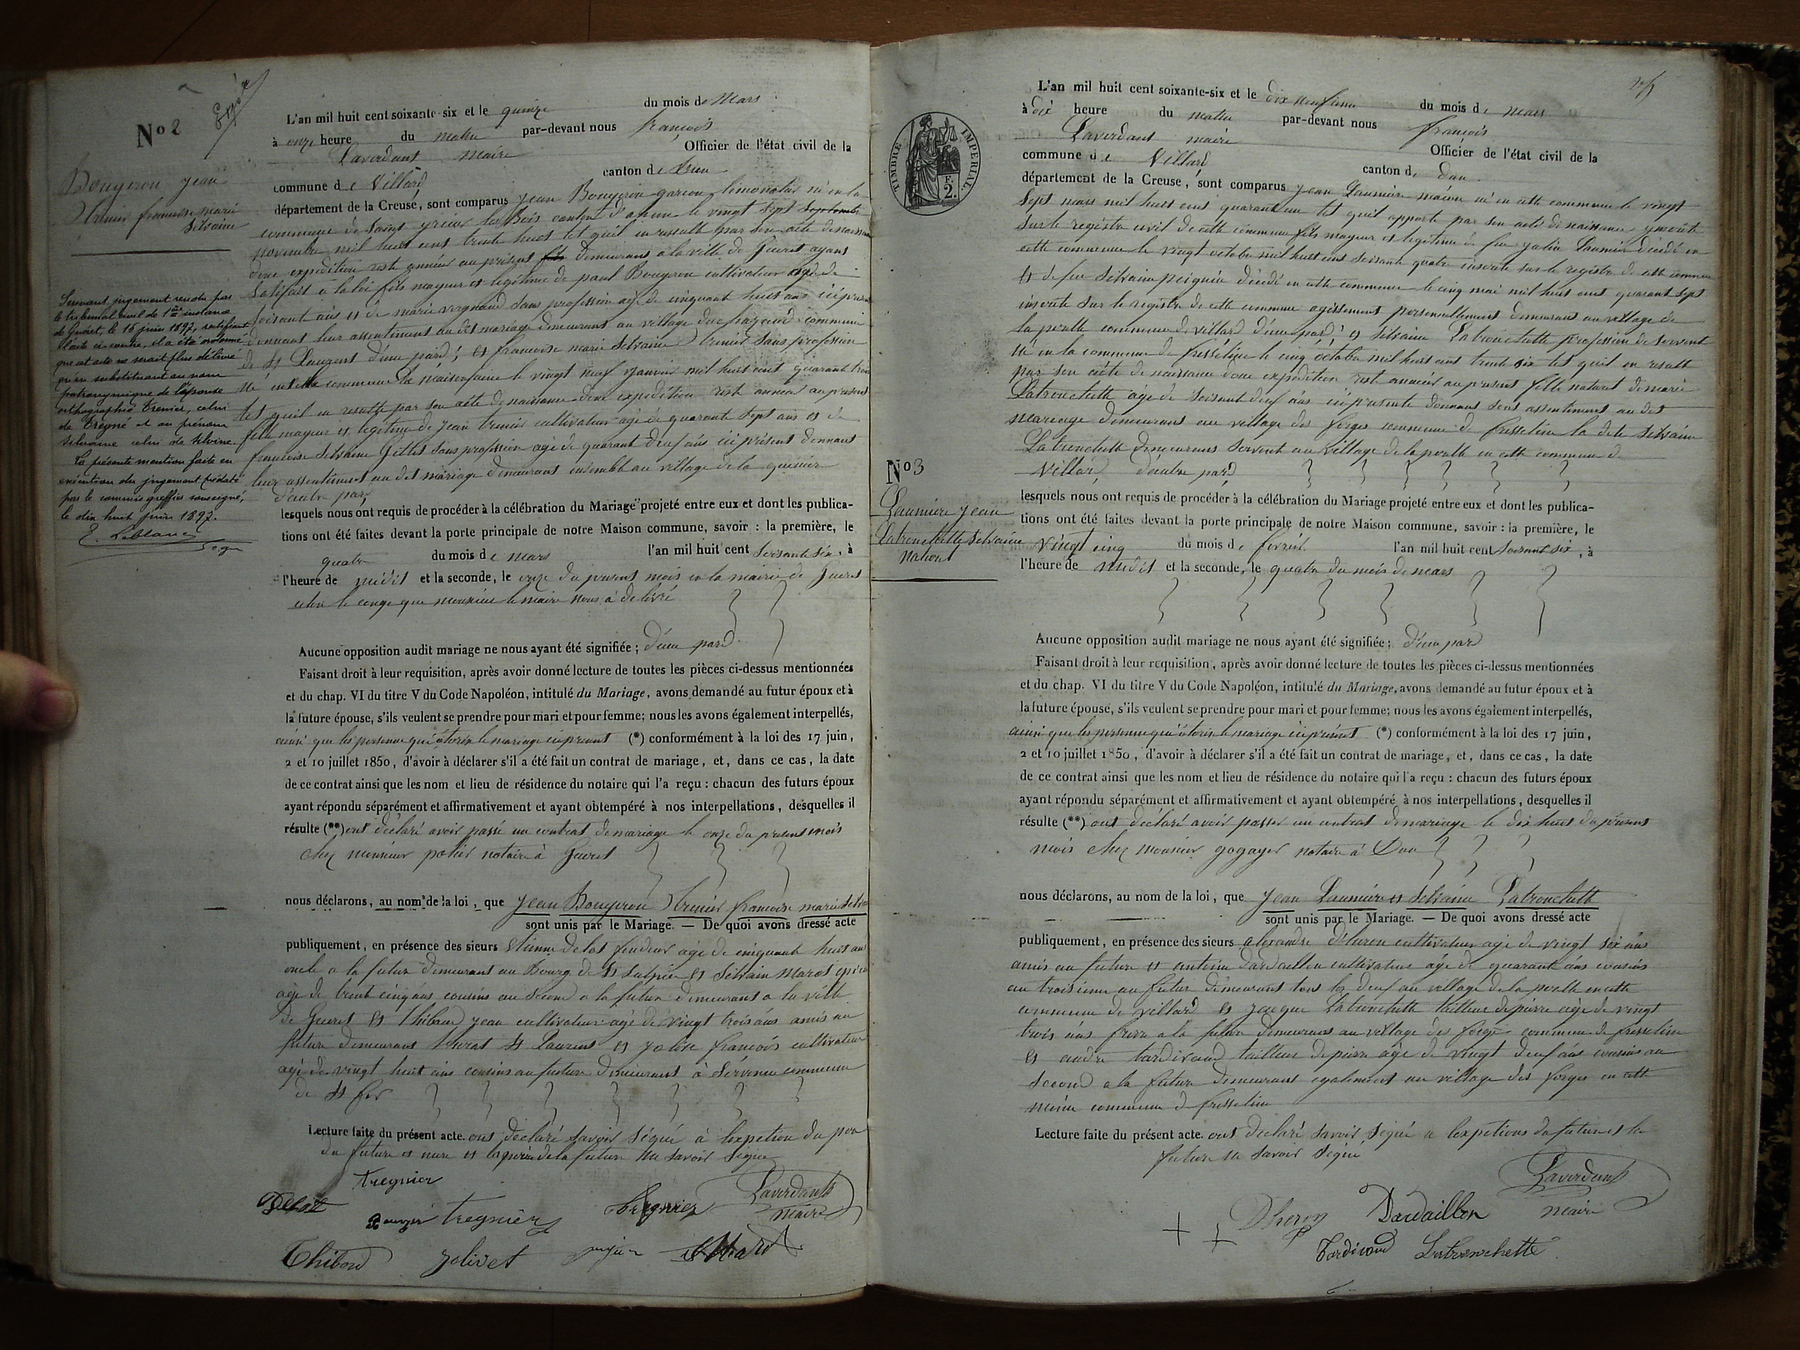 Nº 2
Bougeron jean
françoise marie
Silvaine
Suivant jugement rendu par
le tribunal civil de 1ère instance
de Guéret, le 15 juin 1897, rectifiant
l'acte ci-contre, il a été ordonné
que cet acte ne serait plus délivré
qu'en substituant au nom
patronymique de l'épouse
orthographié Trenier, celui
de Trégné et au prénom
Silvaine celui de Silvine.
La présente mention faite en
exécution du jugement prédaté
par le commis greffier soussigné,
le dix huit juin 1897.
E. Leblanc
L'an mil huit cent soixante-six et le quinze du mois de Mars
à onze heure du matin par-devant nous françois
Laverdant maire Officier de l'état civil de la
commune de Villard canton de Dun
département de la Creuse, sont comparus jean Bougeron garçon limonadier né en la
commune de Saint yrieix les bois canton d'ahun le vingt sept septembre
novembre mil huit cent trente huit tel qu'il en resulte par son acte de naissance
dont expédition est annéxé au présent demeurant a la ville de Guéret ayant
Satisfait a la loi fils majeur et legitime de paul Bougeron cultivateur agé de
soisante ans et de marie vergnaud sans profession agé de cinquant huit ans ici present
donnant leur assentiment au dit mariage demeurant au village du commune
de St Laurent d'une pard; et francoise marie Silvaine trenier sans profession
né en cette commune la naisenfanne le vingt neuf janvier mil huit cent quarant trois
tel qu'il en resulte par son acte de naissance dont expedition est annéxé au présent
fille majeur et legitime de jean trenier cultivateur agé de quarante sept ans et de
francoise Silvaine Gilles sans profession agé de quarant deuf ans ici présent donnant
leur assentiment au dit mariage demeurant ensemble au village de la
d'autre pard
lesquels nous ont requis de procéder à la célébration du Mariage projeté entre eux et dont les publica-
tions ont été faites devant la porte principale de notre Maison commune, savoir : la première, le
quatre du mois de mars l'an mil huit cent soisante six, à
l'heure de midit et la seconde, le onze du present mois en la mairie de Gueret
selon le conge que monsieur le maire nous a délivré
Aucune opposition audit mariage ne nous ayant été signifiée ; d'une pard
Faisant droit à leur requisition, après avoir donné lecture de toutes les pièces ci-dessus mentionnées
et du chap. VI du titre V du Code Napoléon, intitulé du Mariage, avons demandé au futur époux et à
la future épouse, s'ils veulent se prendre pour mari et pour femme; nous les avons également interpellés,
ainsi que les persenne qui otoris le mariage ci present (*) conformément à la loi des 17 juin,
2 et 10 juillet 1850, d'avoir à déclarer s'il a été fait un contrat de mariage, et, dans ce cas, la date
de ce contrat ainsi que les nom et lieu de résidence du notaire qui l'a reçu : chacun des futurs époux
ayant répondu séparément et affirmativement et ayant obtempéré à nos interpellations, desquelles il
résulte (**) ont déclaré avoir passé un contrat de mariage le onze du présent mois
chez monsieur polier notaire à Gueret
nous déclarons, au nom de la loi, que jean Bougeron trenier francoise marie Silvaine
sont unis par le Mariage. — De quoi avons dressé acte
publiquement, en présence des sieurs Etienne delot fendeur age de cinquant huit ans
oncle a la futur demeurant au Bourg de St Sulpice et Silvain Marot
agé de trente cinq ans cousins au second a la futur demeurant a la ville
de Gueret et thibaud jean cultivateur agé de vingt trois ans amis au
future demeurant St Laurent et jolivet francois cultivateur
agé de vingt huit ans cousins au future demeurant à commune
de St
Lecture faite du présent acte. ont declaré savoir Segné à lexpetion du
du future et mere et de la future ne savoir Segné
tregnier
Delot
Bougeron tregnier tregnier Laverdant
maire
Thibaud jolivet Marot
L'an mil huit cent soixante-six et le dix neufieme du mois de mars
à dix heure du matin par-devant nous françois
Laverdant maire Officier de l'état civil de la
commune de Villard canton de dun
TIMBRE IMPERIAL
F. 2.
département de la Creuse, sont comparus jean Laumier macon né en cette commune le vingt
sept mars mil huit cent quarant un tel quil apporte par son acte de naissance ynscrite
sur le registre civil de cette commune fils majeur et legitime de feu Laumier decidé en
cette commune le vingt octobre mil huit cent soisante quatre inscrite sur le registre de cette commune
et de feu Silvain peignier décidé en cette commune le cinq mai mil huit cent quarant sept
inscrite sur le registre de cette commune agissement personnellement demeurant au village de
la poulle commune de villard d'une pard; et Silvaine Latronchette profession de servent
né en la commune de fresseline le cinq octobre mil huit cent trente six tel quil en resulte
par son acte de naissance dont expédition est annéxé au present fille naturel de marie
Latronchette agé de soisant deuf ans ici presente donnant sont assentiment au dit
mariage demeurant au village des forges commune de fresselin la dite Silvaine
Latronchette demeurant servent au village de la poulle en cette commune de
Villard, d'autre pard
Nº 3
Laumier jean
Latronchette Silvaine
natiort
lesquels nous ont requis de procéder à la célébration du Mariage projeté entre eux et dont les publica-
tions ont été faites devant la porte principale de notre Maison commune, savoir : la première, le
vingt cinq du mois de fevrier l'an mil huit cent soisant six, à
l'heure de midit et la seconde, le quatre du mois de mars
Aucune opposition audit mariage ne nous ayant été signifiée; d'une pard
Faisant droit à leur requisition, après avoir donné lecture de toutes les pièces ci-dessus mentionnées
et du chap. VI du titre V du Code Napoléon, intitulé du Mariage, avons demandé au futur époux et à
la future épouse, s'ils veulent se prendre pour mari et pour femme; nous les avons également interpellés,
ainsi que les persenne qui otoris le mariage ici présent (*) conformément à la loi des 17 juin,
2 et 10 juillet 1850, d'avoir à déclarer s'il a été fait un contrat de mariage, et, dans ce cas, la date
de ce contrat ainsi que les nom et lieu de résidence du notaire qui l'a reçu : chacun des futurs époux
ayant répondu séparément et affirmativement et ayant obtempéré à nos interpellations, desquelles il
résulte (**) ont declaré avoir passer un contrat de mariage le dix huit du présent
mois chez monsieur gogayer notaire à Dun
nous déclarons, au nom de la loi, que jean Laumier et Silvaine Latronchette
sont unis par le Mariage. — De quoi avons dressé acte
publiquement, en présence des sieurs alexandre cultivateur agé de vingt six ans
amis au future et antoine dardaillon cultivateur agé de quarant ans cousins
au troisieme au futur demeurant tous les deuf au village de la poulle en cette
commune de villard et jacque Latronchette tailleur de pierre agé de vingt
trois ans frere a la future demeurant au village des forge commune de fresselin
et andre tardivaud tailleur de pierre agé de vingt deuf ans cousins au
second a la future demeurant egalement au village des forges en cette
même commune de fresselin
Lecture faite du présent acte. ont declaré savoir segné a lexpetions du future et la
future ne savoir segné
Laverdant
maire
Dheron Dardaillon
Tardivaud Latronchette